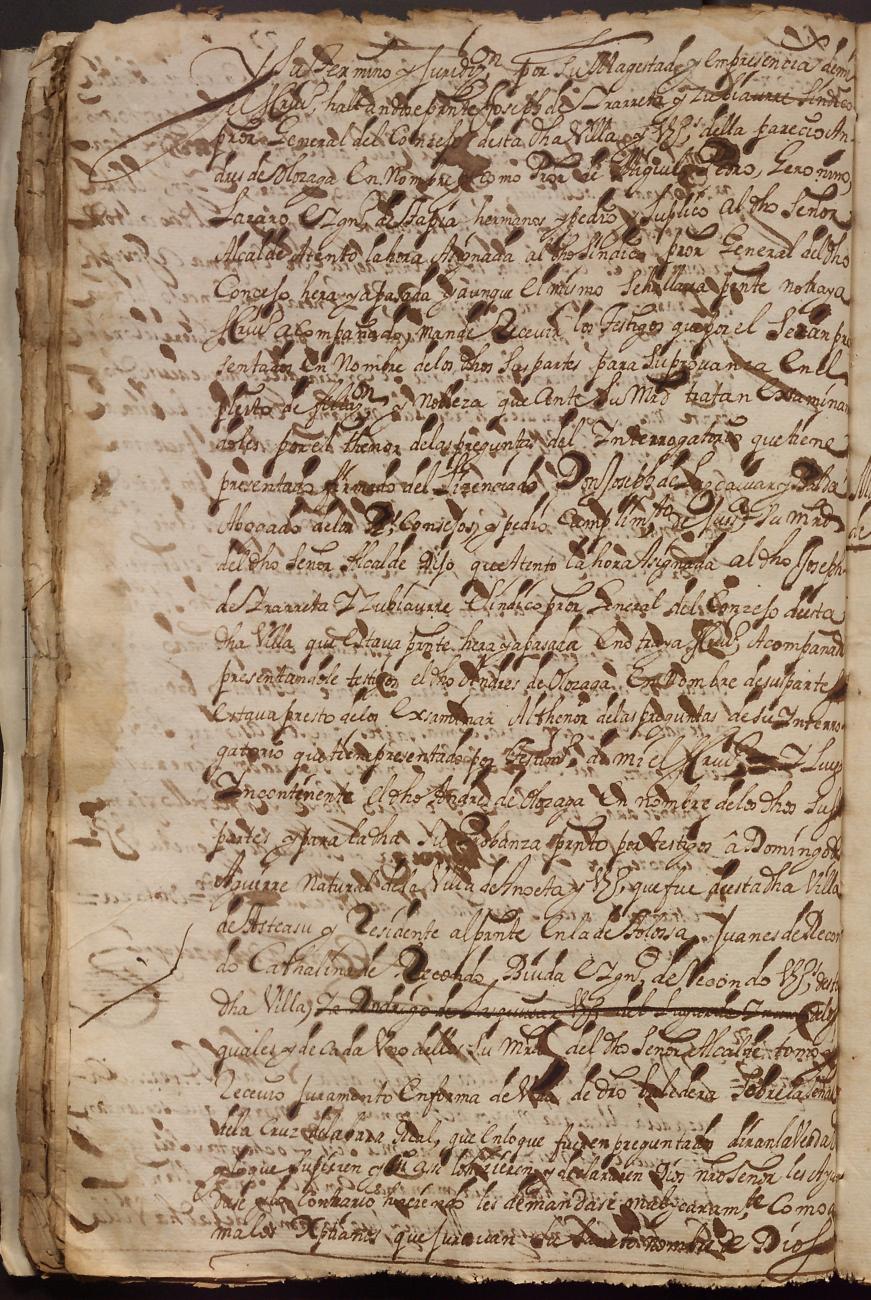 Y Su termino y Jurid.on por Su Magestad y en presencia de mi
el Scriu.o hallandose pnte Joseph de Yrarreta y Zubiaurre Sindico
pror General del Conzejo desta dha Villa y Vz.o della parecio An
dres de Olozaga En Nombre y como Pror de Miguel Pedro, Geronimo,
Lazaro, E Ygn.o de Tapia hermanos y pedio y Suplico al dho Señor
Alcalde Atento la hora Asignada al dho Sindico pror General del dho
Concejo hera ya pasada y aunque el mismo Se hallava pnte no traya
Scriu.o acompañado, mande Recevir los testigos que por el Seran pre
sentados En Nombre de los dhos Sus partes para Su provanza En el
pleito de filia.on y Nobleza que Ante Su Mrd tratan Examinan
doles por el thenor delas preguntas del Interrogatorio que tiene
presentado firmado del Lizenciado Don Joseph de
Abogado delos R.s Consejos, y pedio Cumplim.to de Just.a Su Mrd
del dho Señor Alcalde Dijo que Atento la hora Asignada al dho Joseph
de Yrarreta Y Zubiaurre Sindico pror General del Conzejo desta
dha Villa que estava pnte hera ya pasada E no traya Scriu.o Acompañado
presentandole testigos el dho Andres de Olozaga En Nombre de sus partes
estava presto delos Exsaminar Al thenor delas preguntas de su Interro
gatorio que tiene presentado por testim.o de mi el Scriu.o Y Luego
Yncontenente el dho Andres de Olozaga En nombre delos dhos Sus
partes y para la dha Su Probanza pnto por testigos â Domingo de
Aguirre Natural dela Villa de Anoeta y Vz.o que fue desta dha Villa
de Asteasu y Residente al pnte En la de Tolossa, Juanes de Recon
do Cathalina de Recondo, Biuda E Ygn.o de Recondo Vz.os desta
dha Villa, delos
quales y de cada Uno dellos Su Mrd del dho Señor Alcalde tomo y
Recevio Juramento En forma de Vida de dro baledera Sobre la Señal
dela Cruz dela bara Real, que En lo que fuesen preguntados diran la Verdad
y lo que Supieren y Si asi lo hizieren y declararen Dios nro Señor les Ayu
dase y lo Contrario haciendo les demandase mal y caram.te Como a
malos Xptianos que Juravan Su Santo nombre de Dios